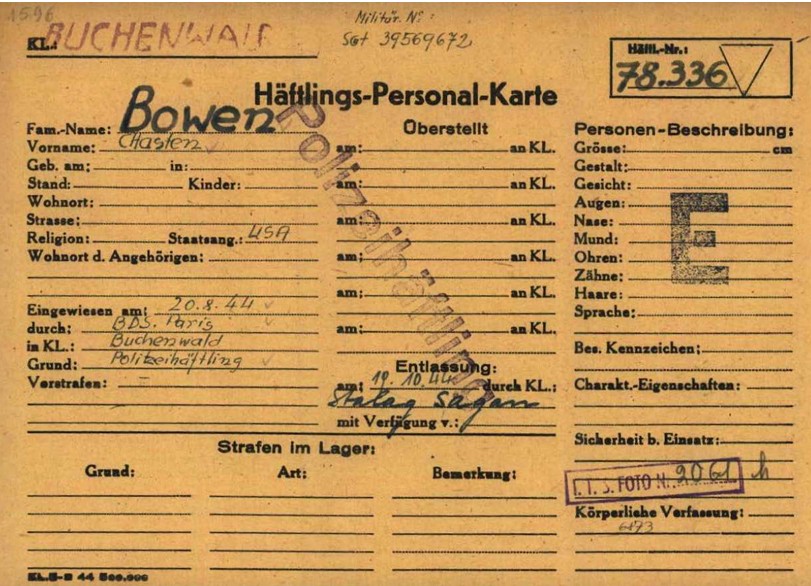 1596
Militär. Nº:
Sgt 39569672
KL.: BUCHENWALD
Häftl.-Nr.:
78.336
Häftlings-Personal-Karte
Fam.-Name: Bowen
Vorname: Chasten
Geb. am: in:
Stand: Kinder:
Wohnort:
Strasse:
Religion: Staatsang.: USA
Wohnort d. Angehörigen:
Eingewiesen am: 20.8.44
durch: BDS. Paris
in KL.: Buchenwald
Grund: Polizeihäftling
Vorstrafen: —
Überstellt
am: an KL.
am: an KL.
am: an KL.
am: an KL.
am: an KL.
am: an KL.
Polizeihäftling
Entlassung:
am: 19.10.44 durch KL.:
Stalag Sagan
mit Verfügung v.:
Personen-Beschreibung:
Grösse: cm
Gestalt:
Gesicht:
Augen:
Nase:
Mund:
Ohren:
Zähne:
Haare:
Sprache:
E
Bes. Kennzeichen:
Charakt.-Eigenschaften:
Sicherheit b. Einsatz:
I. T. S. FOTO N. 2061 h
Körperliche Verfassung:
6173
Strafen im Lager:
Grund: Art: Bemerkung: